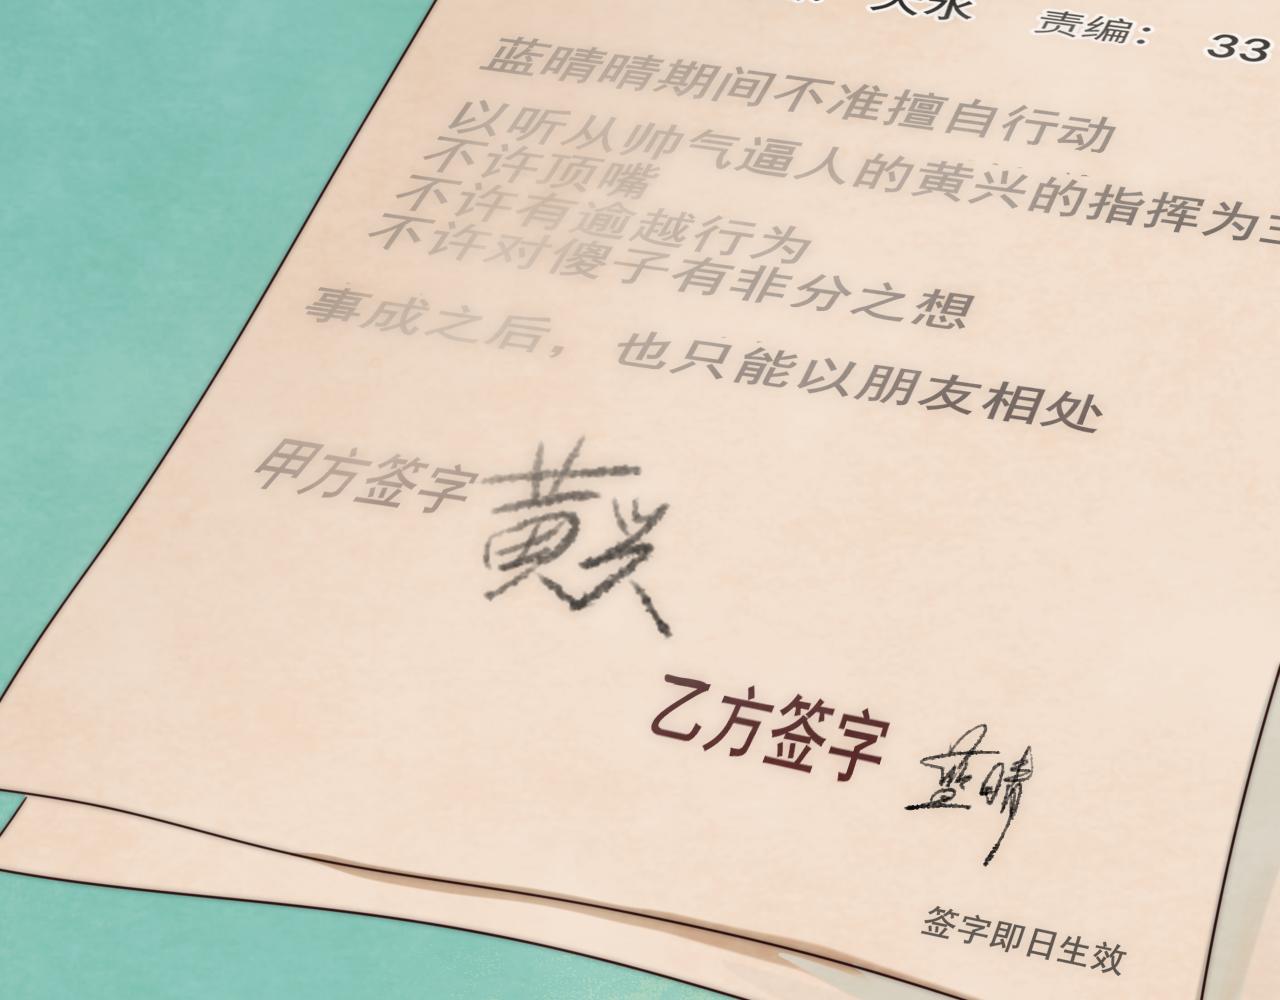 责编： 33
蓝晴晴期间不准擅自行动
以听从帅气逼人的黄兴的指挥为主
不许顶嘴
不许有逾越行为
不许对傻子有非分之想
事成之后， 也只能以朋友相处
甲方签字 黄兴
乙方签字 蓝晴
签字即日生效